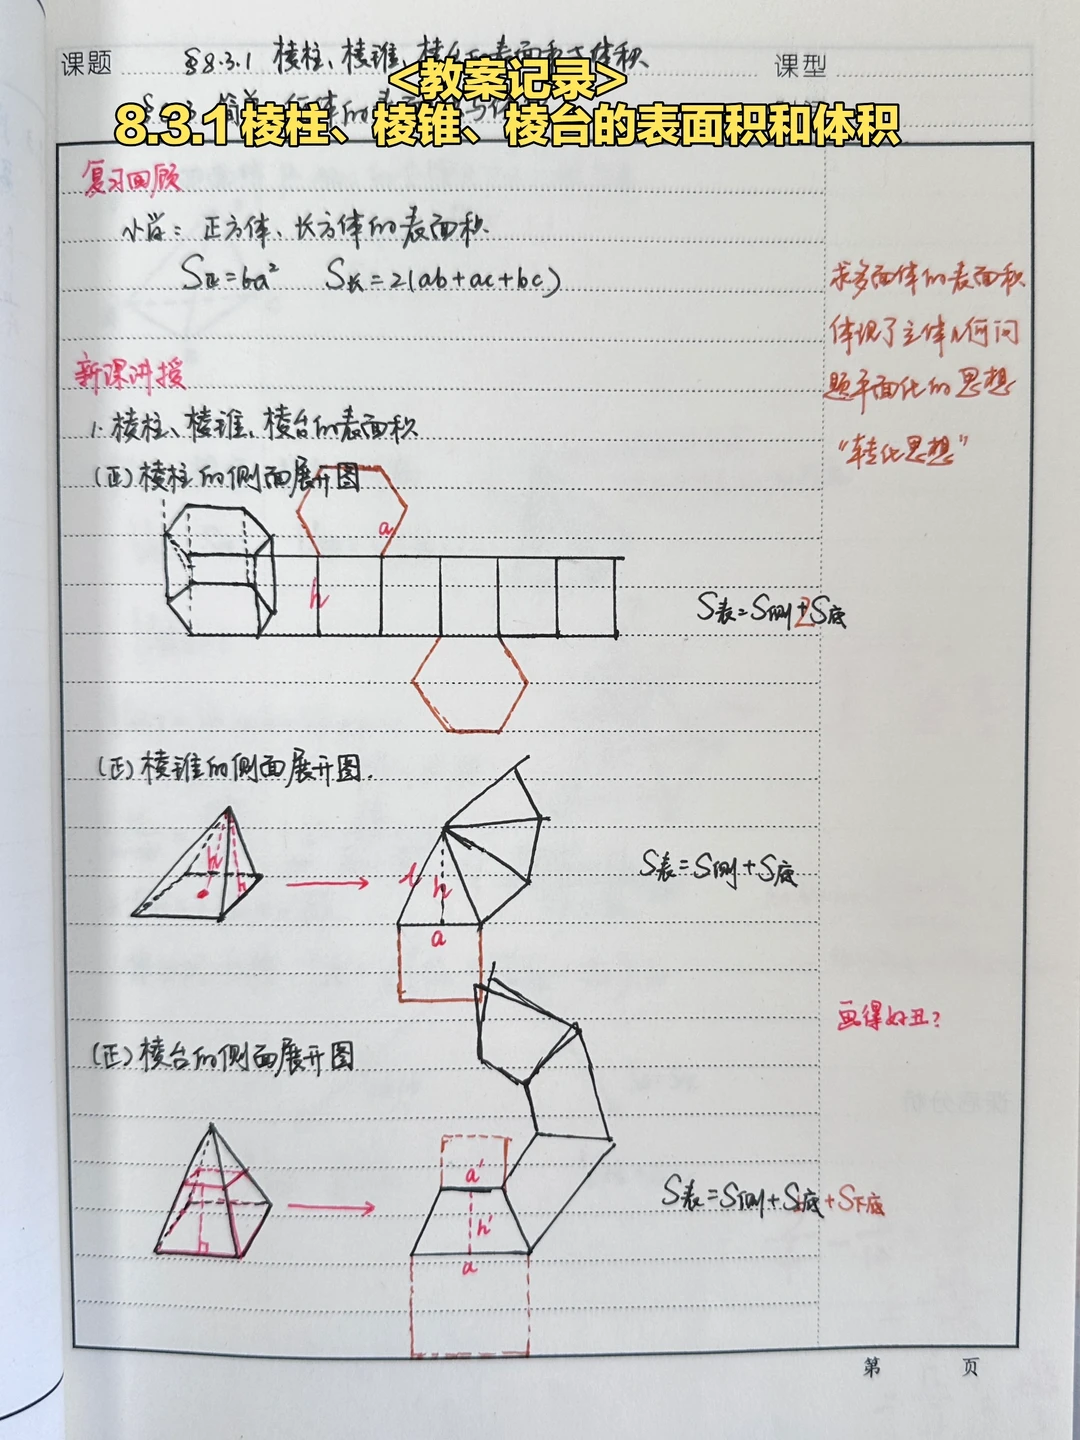 课题 §8.3.1 棱柱、棱锥、棱台的表面积与体积 课型
<教案记录>
8.3.1棱柱、棱锥、棱台的表面积和体积
复习回顾
小学：正方体、长方体的表面积
S正=6a² S长=2(ab+ac+bc)
求多面体的表面积
体现了立体几何问
题平面化的思想
“转化思想”
新课讲授
1. 棱柱、棱锥、棱台的表面积
(正)棱柱的侧面展开图
a
h
S表=S侧+2S底
(正)棱锥的侧面展开图.
h h
l h
a
S表=S侧+S底
画得好丑?
(正)棱台的侧面展开图
a'
h'
a
S表=S侧+S上底+S下底
第 页